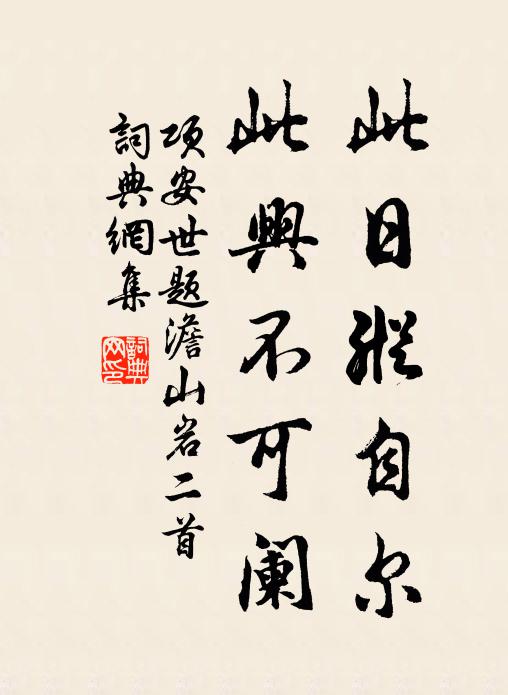 此日縱自尔
此興不可阑
项安世题澹山岩二首
詞典網集
詞典網印